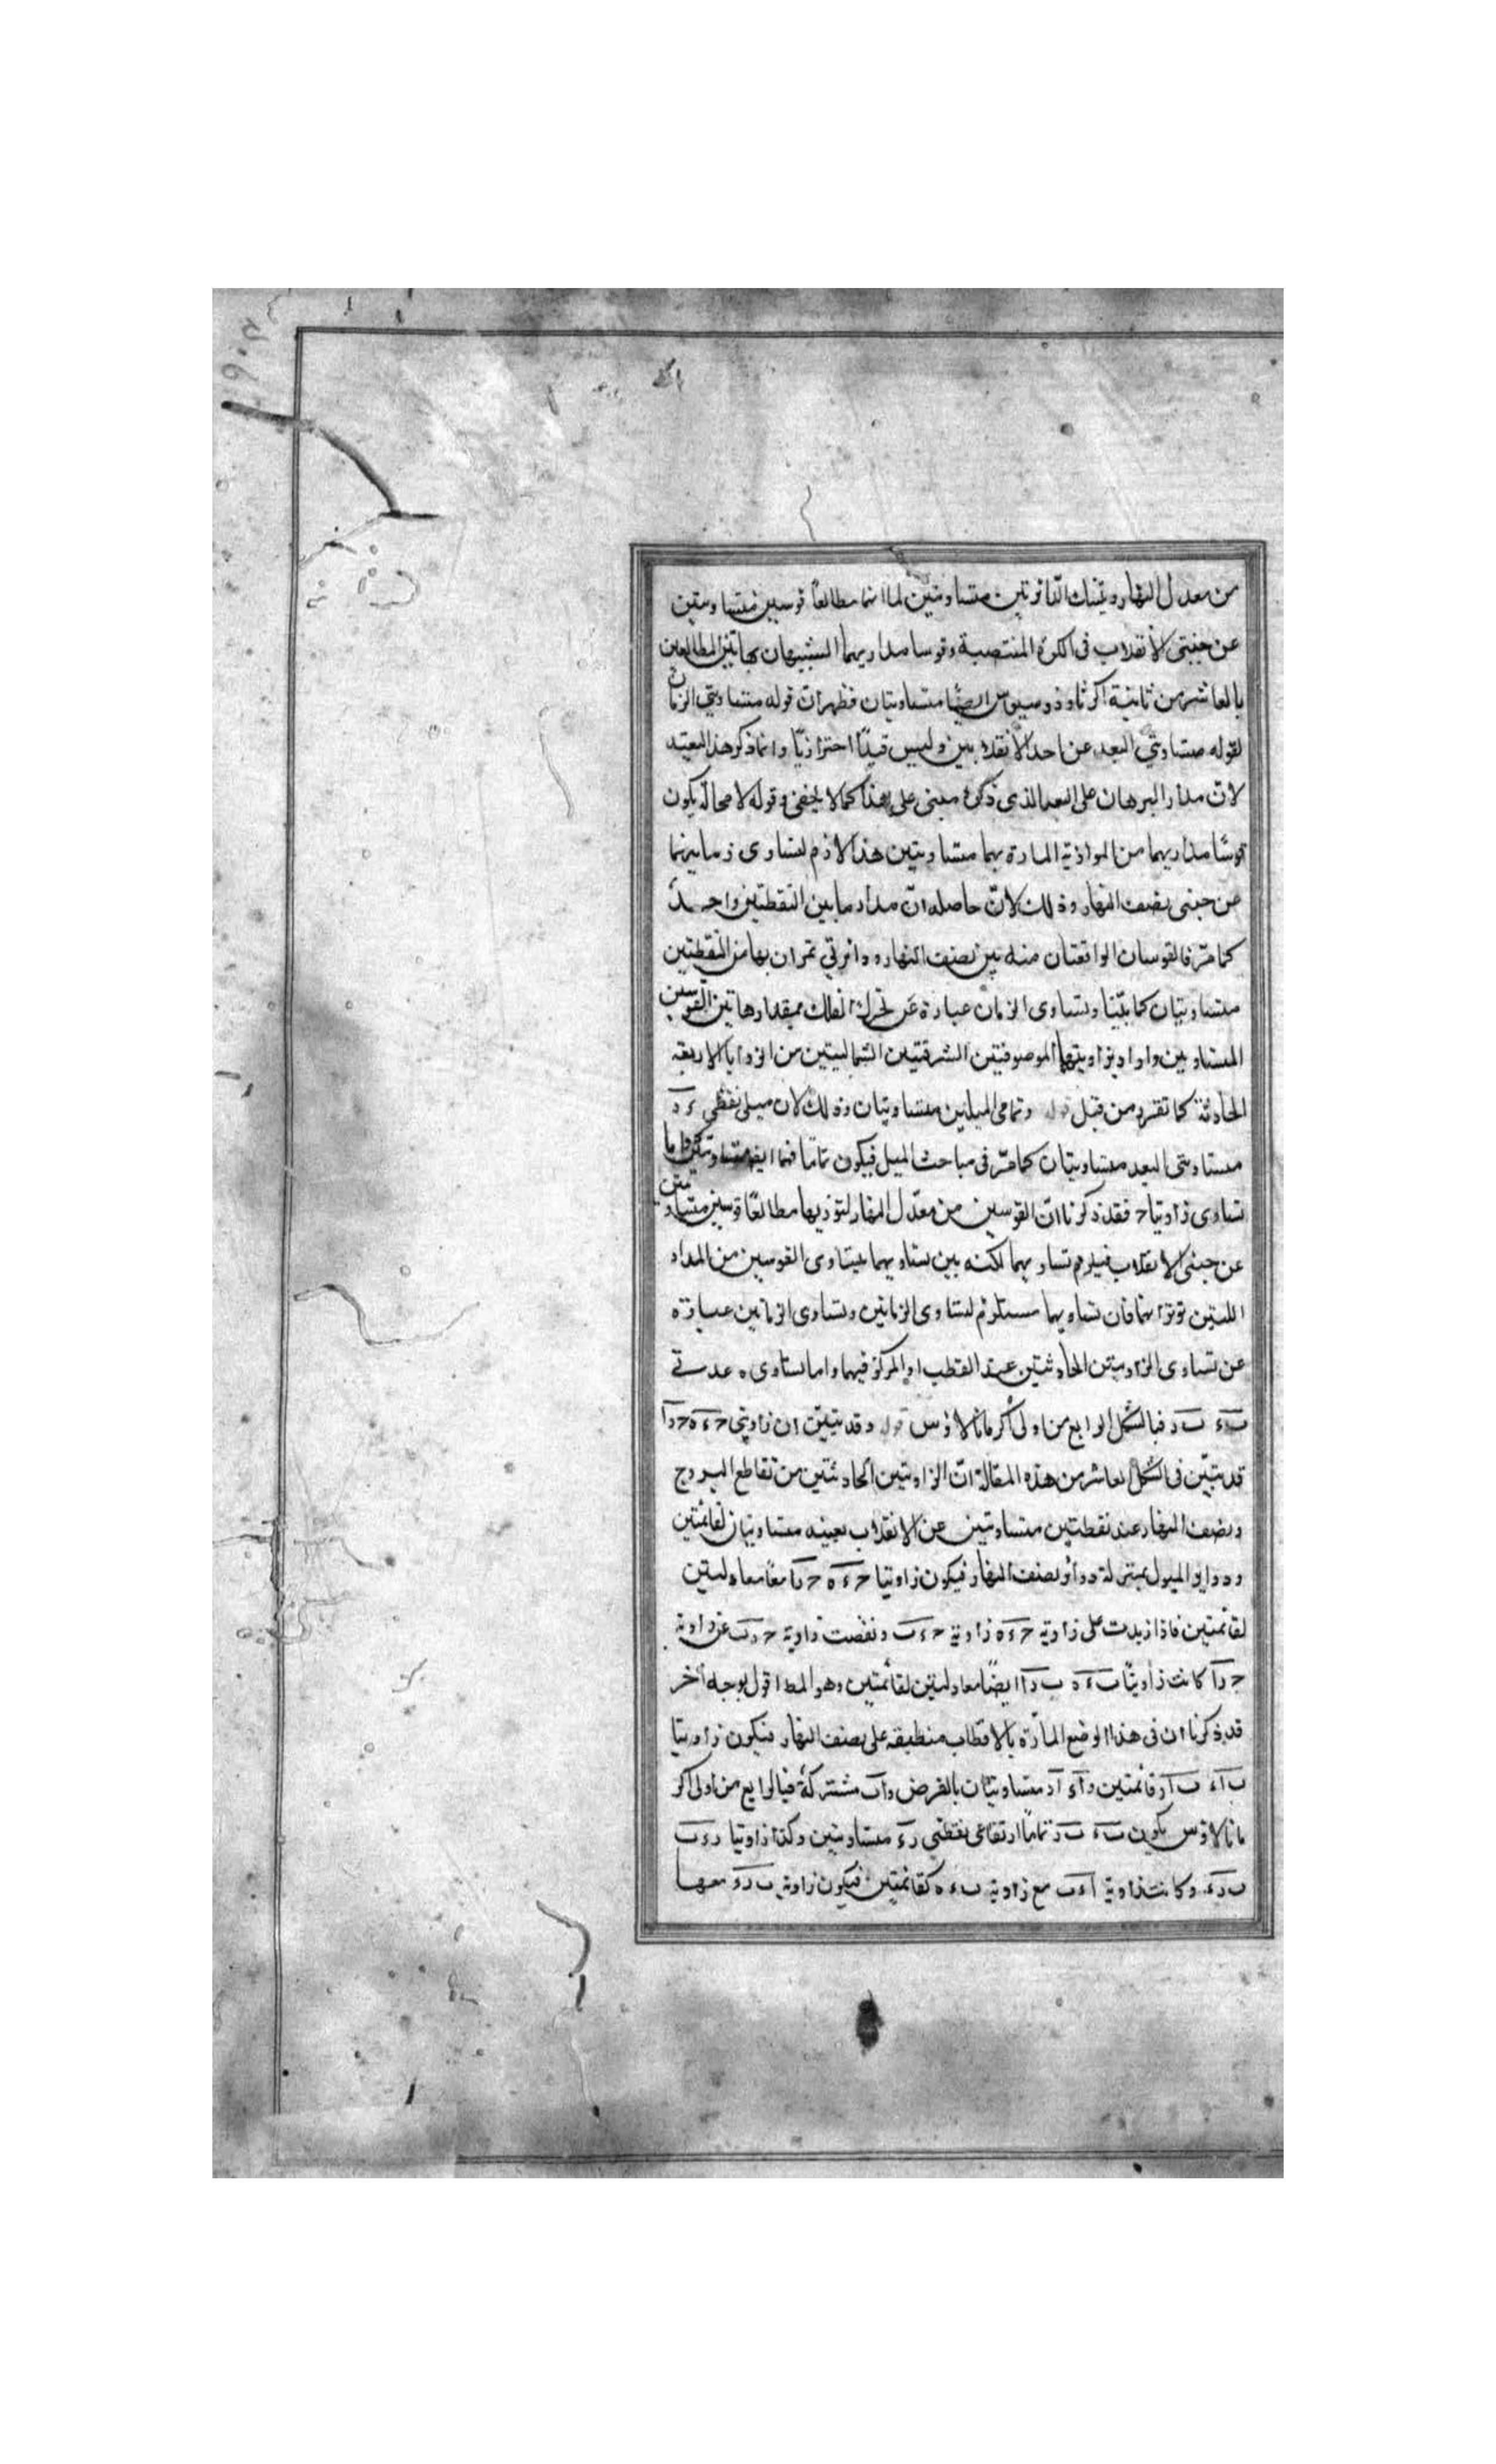 من معدل النهار وتينك الدائرتين متساويتين لما انهما مطالعا قوسين متساويتين
عن جنبتى الانقلاب فى الكرة المنتصبة وقوسا مداريهما الشبيهتان بهاتين المطالعين
بالعاشر من ثانية اكر ثاوذوسيوس ايضا متساويتان فظهر ان قوله متساويتي الزمان
لقوله متساويتي البعد عن احد الانقلابين وليس قيدًا احترازيًا وانما ذكر هذا القيد
لان مدار البرهان على البعد الذى ذكره مبنى على هذا كما لا يخفى وقوله لا محالة يكون
قوسا مداريهما من الموازية المارة بهما متساويتين هذا لازم لتساوى زمانيهما
عن جنبى نصف النهار وذلك لان حاصله ان مدار ما بين النقطتين واحد
كما مرّ فالقوسان الواقعتان منه بين نصف النهار ودائرتي تمران بها من النقطتين
متساويتان كما بيّنا وتساوى الزمان عبارة عن تحرك الفلك بمقدار هاتين القوسين
المتساويين واراد بزاويتهما الموصوفتين الشرقيتين الشماليتين من الزوايا الاربعة
الحادثة كما تقرر من قبل قوله وتمامى الميلين متساويتان وذلك لان ميلى نقطتى ء د
متساويتى البعد متساويتان كما مرّ فى مباحث الميل فيكون تماماهما ايضا متساويتين واما
تساوى زاويتا ح فقد ذكرنا ان القوسين من معدّل النهار لتوزيها مطالعا قوسين متساويتين
عن جنبى الانقلاب فيلزم تساويهما لكنه بين تساويهما بتساوى القوسين من المدار
اللتين توترانهما فان تساويهما مستلزم لتساوى الزمانين وتساوى الزمانين عبارة
عن تساوى الزاويتين الحادثتين عند القطب او المركز فيهما واما تساوى ه عدتى
ب ء ب د فبالشكل الرابع من اولى اكر مانالاوس قوله وقد تبيّن ان زاويتى ح ء ه ح د ا
قد تبيّن فى الشكل العاشر من هذه المقالة انّ الزاويتين الحادثتين من تقاطع البروج
ونصف النهار عند نقطتين متساويتين عن الانقلاب بعينه متساويتان لقائمتين
ودوائر الميول بمنزلة دوائر نصف النهار فيكون زاويتا ح ء ه ح د ا معًا معادلتين
لقائمتين فاذا زيدت على زاوية ح ء ه زاوية ح ء ب ونقصت زاوية ح د ب عن زاوية
ح د ا كانت زاويتا ب ء ه ب د ا ايضًا معادلتين لقائمتين وهو المط اقول بوجه اخر
قد ذكرنا ان فى هذا الوضع المارّة بالاقطاب منطبقة على نصف النهار فيكون زاويتا
ب ا ء ب ا د قائمتين و ا ء ا د متساويتان بالفرض و ا ب مشتركة فبالرابع من اولى اكر
مانالاوس يكون ب ء ب د تماما ارتفاعى نقطتى د ء متساويتين وكذا زاويتا د ء ب
ب د ء وكانت زاوية ا ء ب مع زاوية ب ء ه كقائمتين فيكون زاوية ب د ء معها